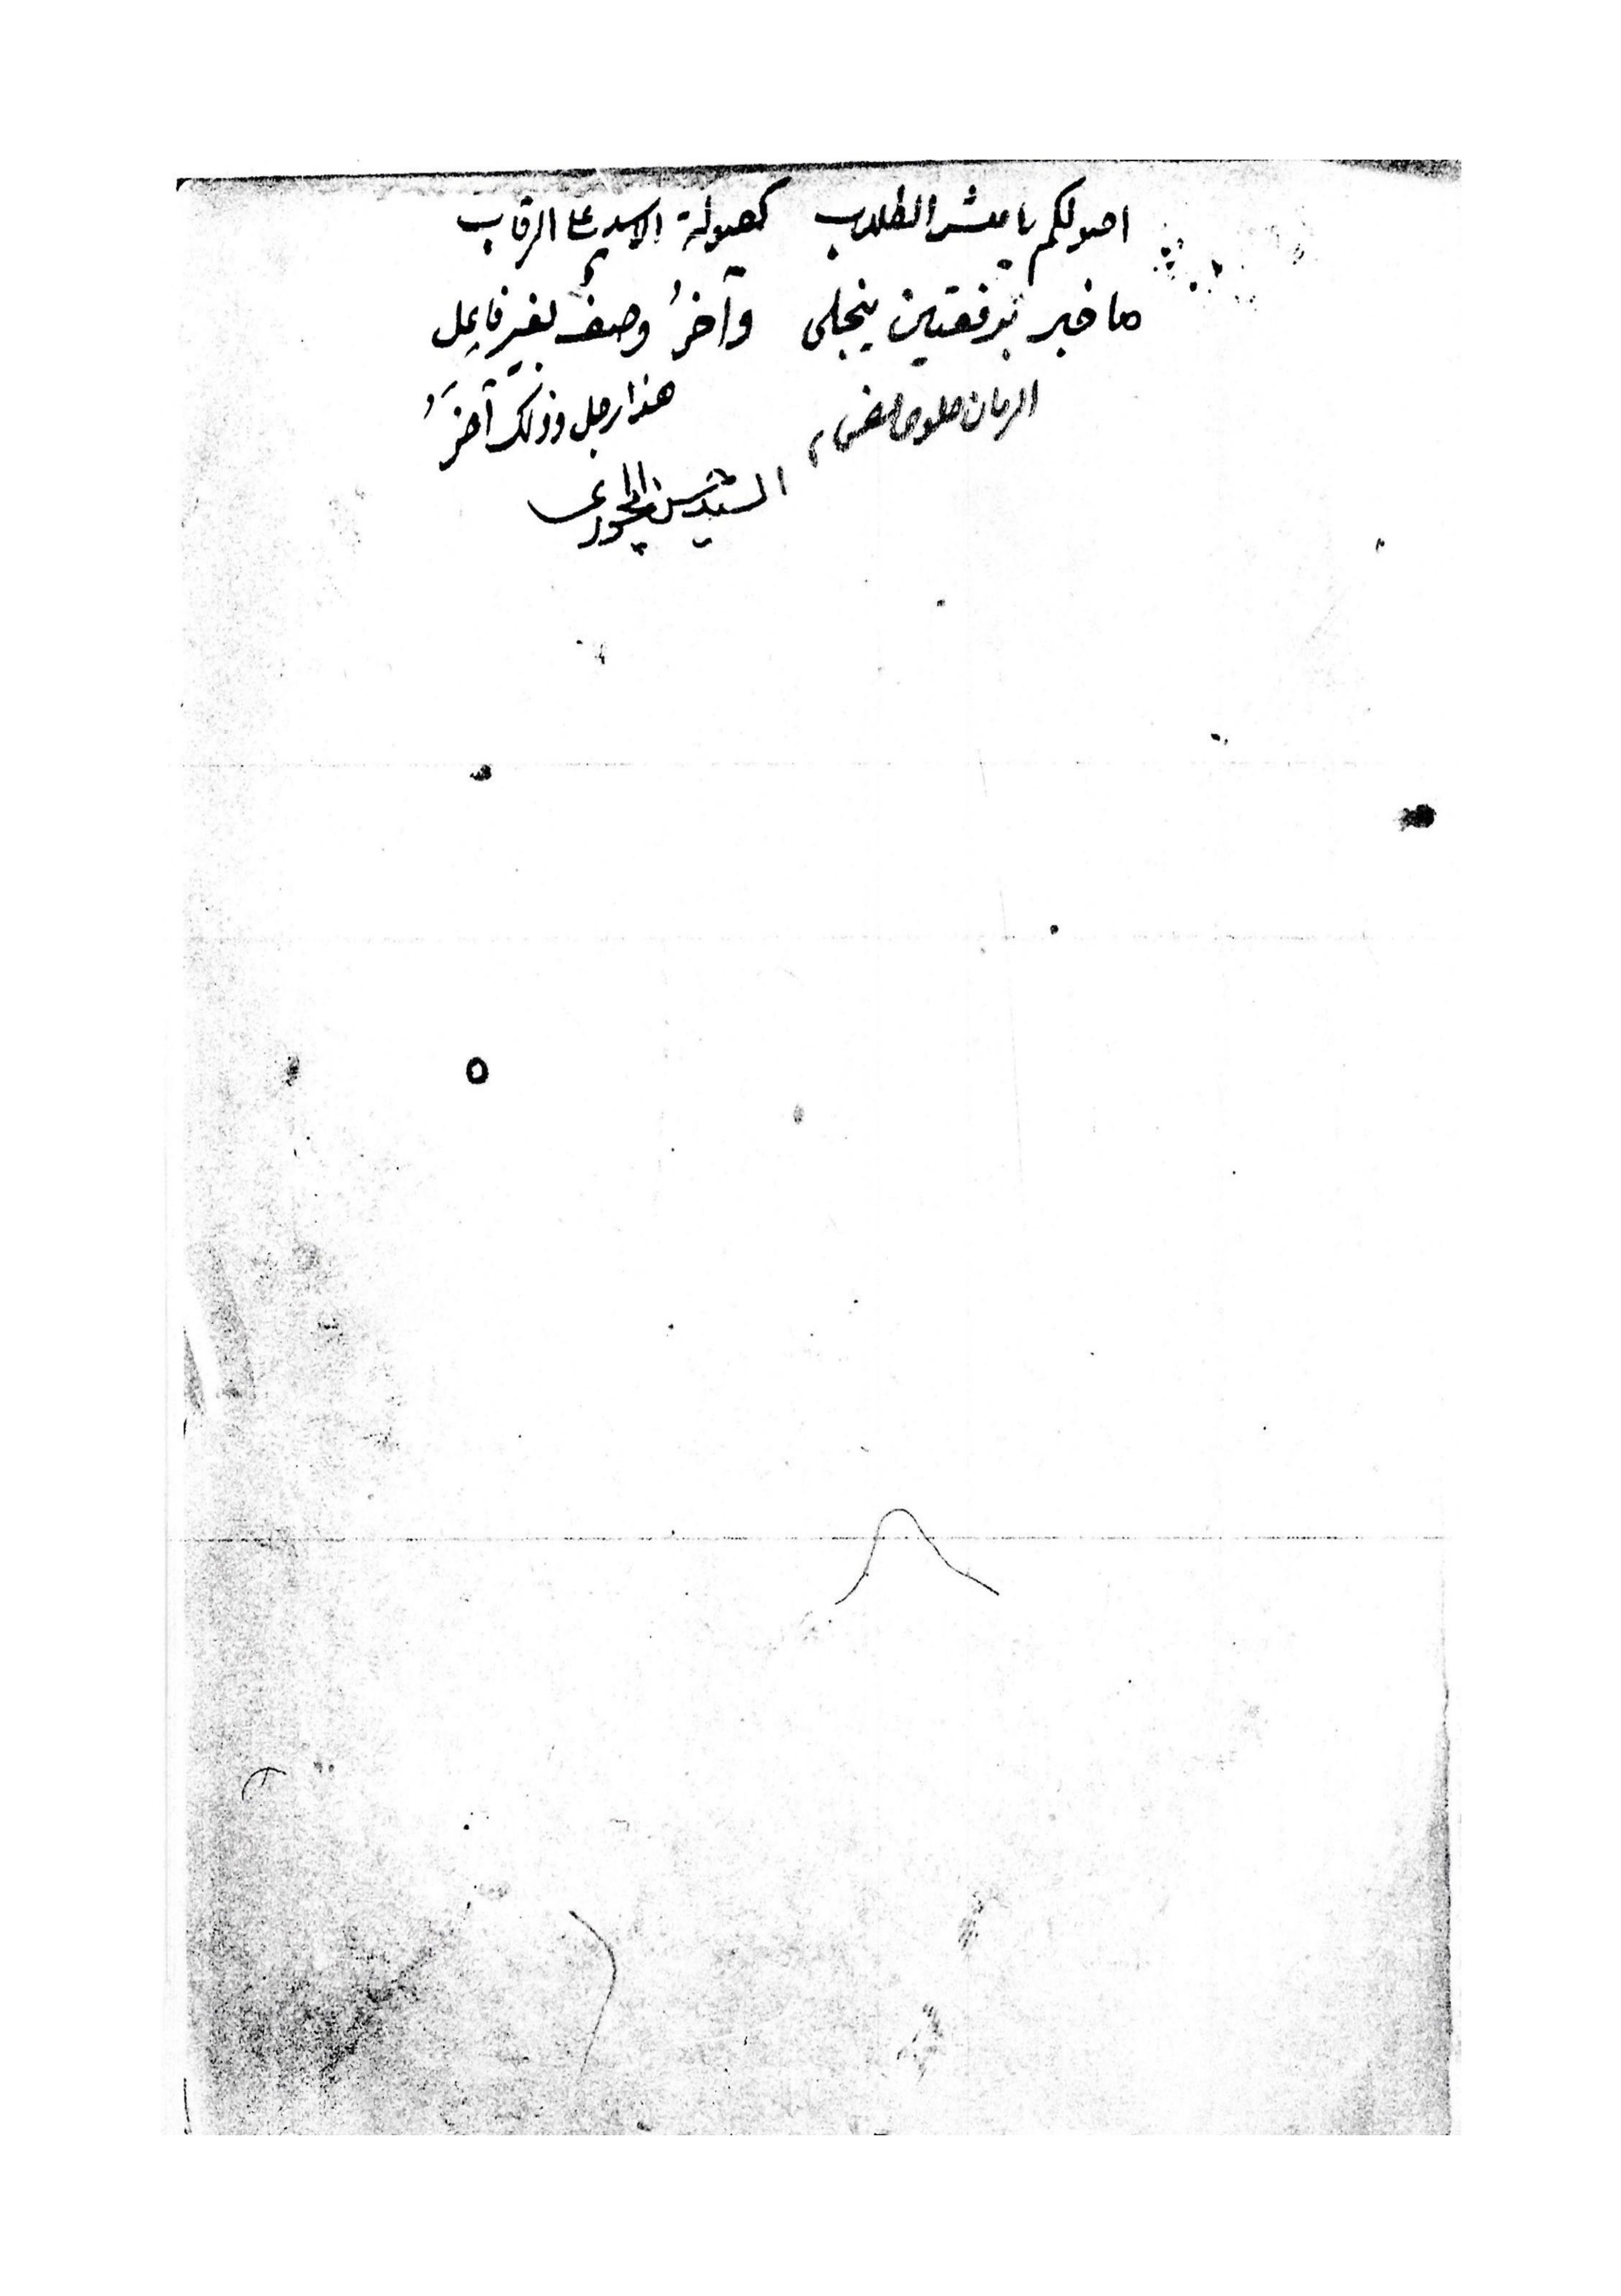 اصولكم يا معشر الطلاب كصولة الاسد على الرقاب
ما خبر برفعتين ينجلى وآخرُ وصف لغير فاعِل
الرمان حلو حامض هذا رجل وذلك آخرُ
السيد حسن
٥